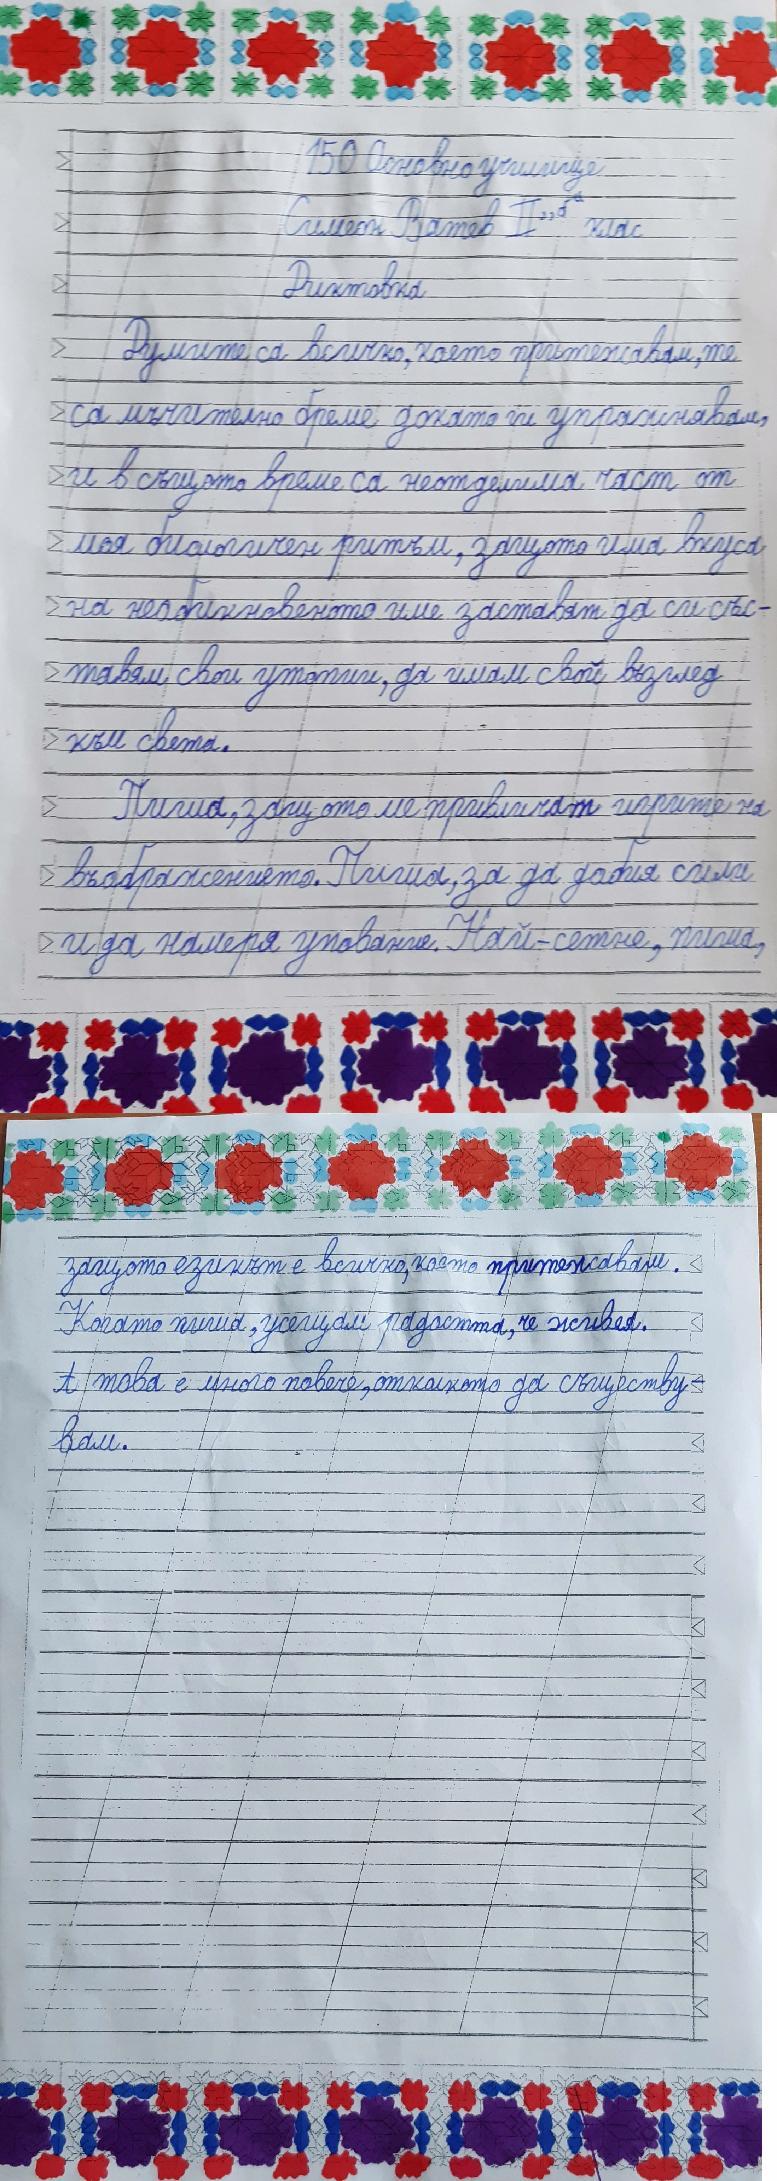 150 Основно училище
Симеон Ватев II "а" клас
Диктовка
Думите са всичко, което притежавам, те
са мъчително бреме докато ги упражнявам,
и в същото време са неотделима част от
моя биологичен ритъм, защото има вкуса
на необикновеното име заставят да си със-
тавям свои утопии, да имам свой възглед
към света.
Пиша, защото ме привличат игрите на
въображението. Пиша, за да добия сили
и да намеря упование. Най-сетне, пиша,
защото езикът е всичко, което притежавам.
Когато пиша, усещам радостта, че живея.
А това е много повече, отколкото да съществу-
вам.